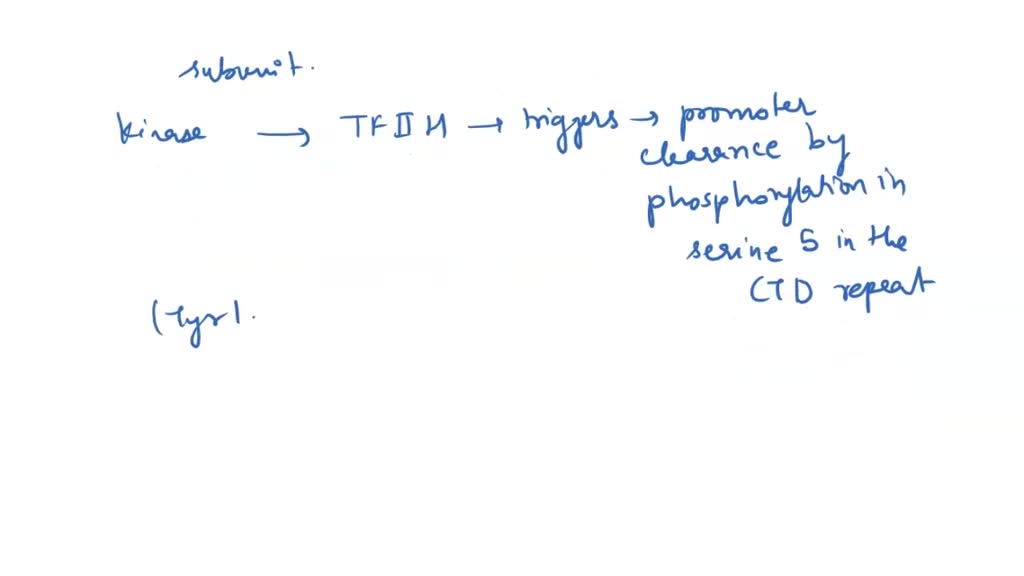 subunit.
kinase → TFIIH → triggers → promoter
clearence by
phosphorylation in
serine 5 in the
CTD repeat
(Tyr1.